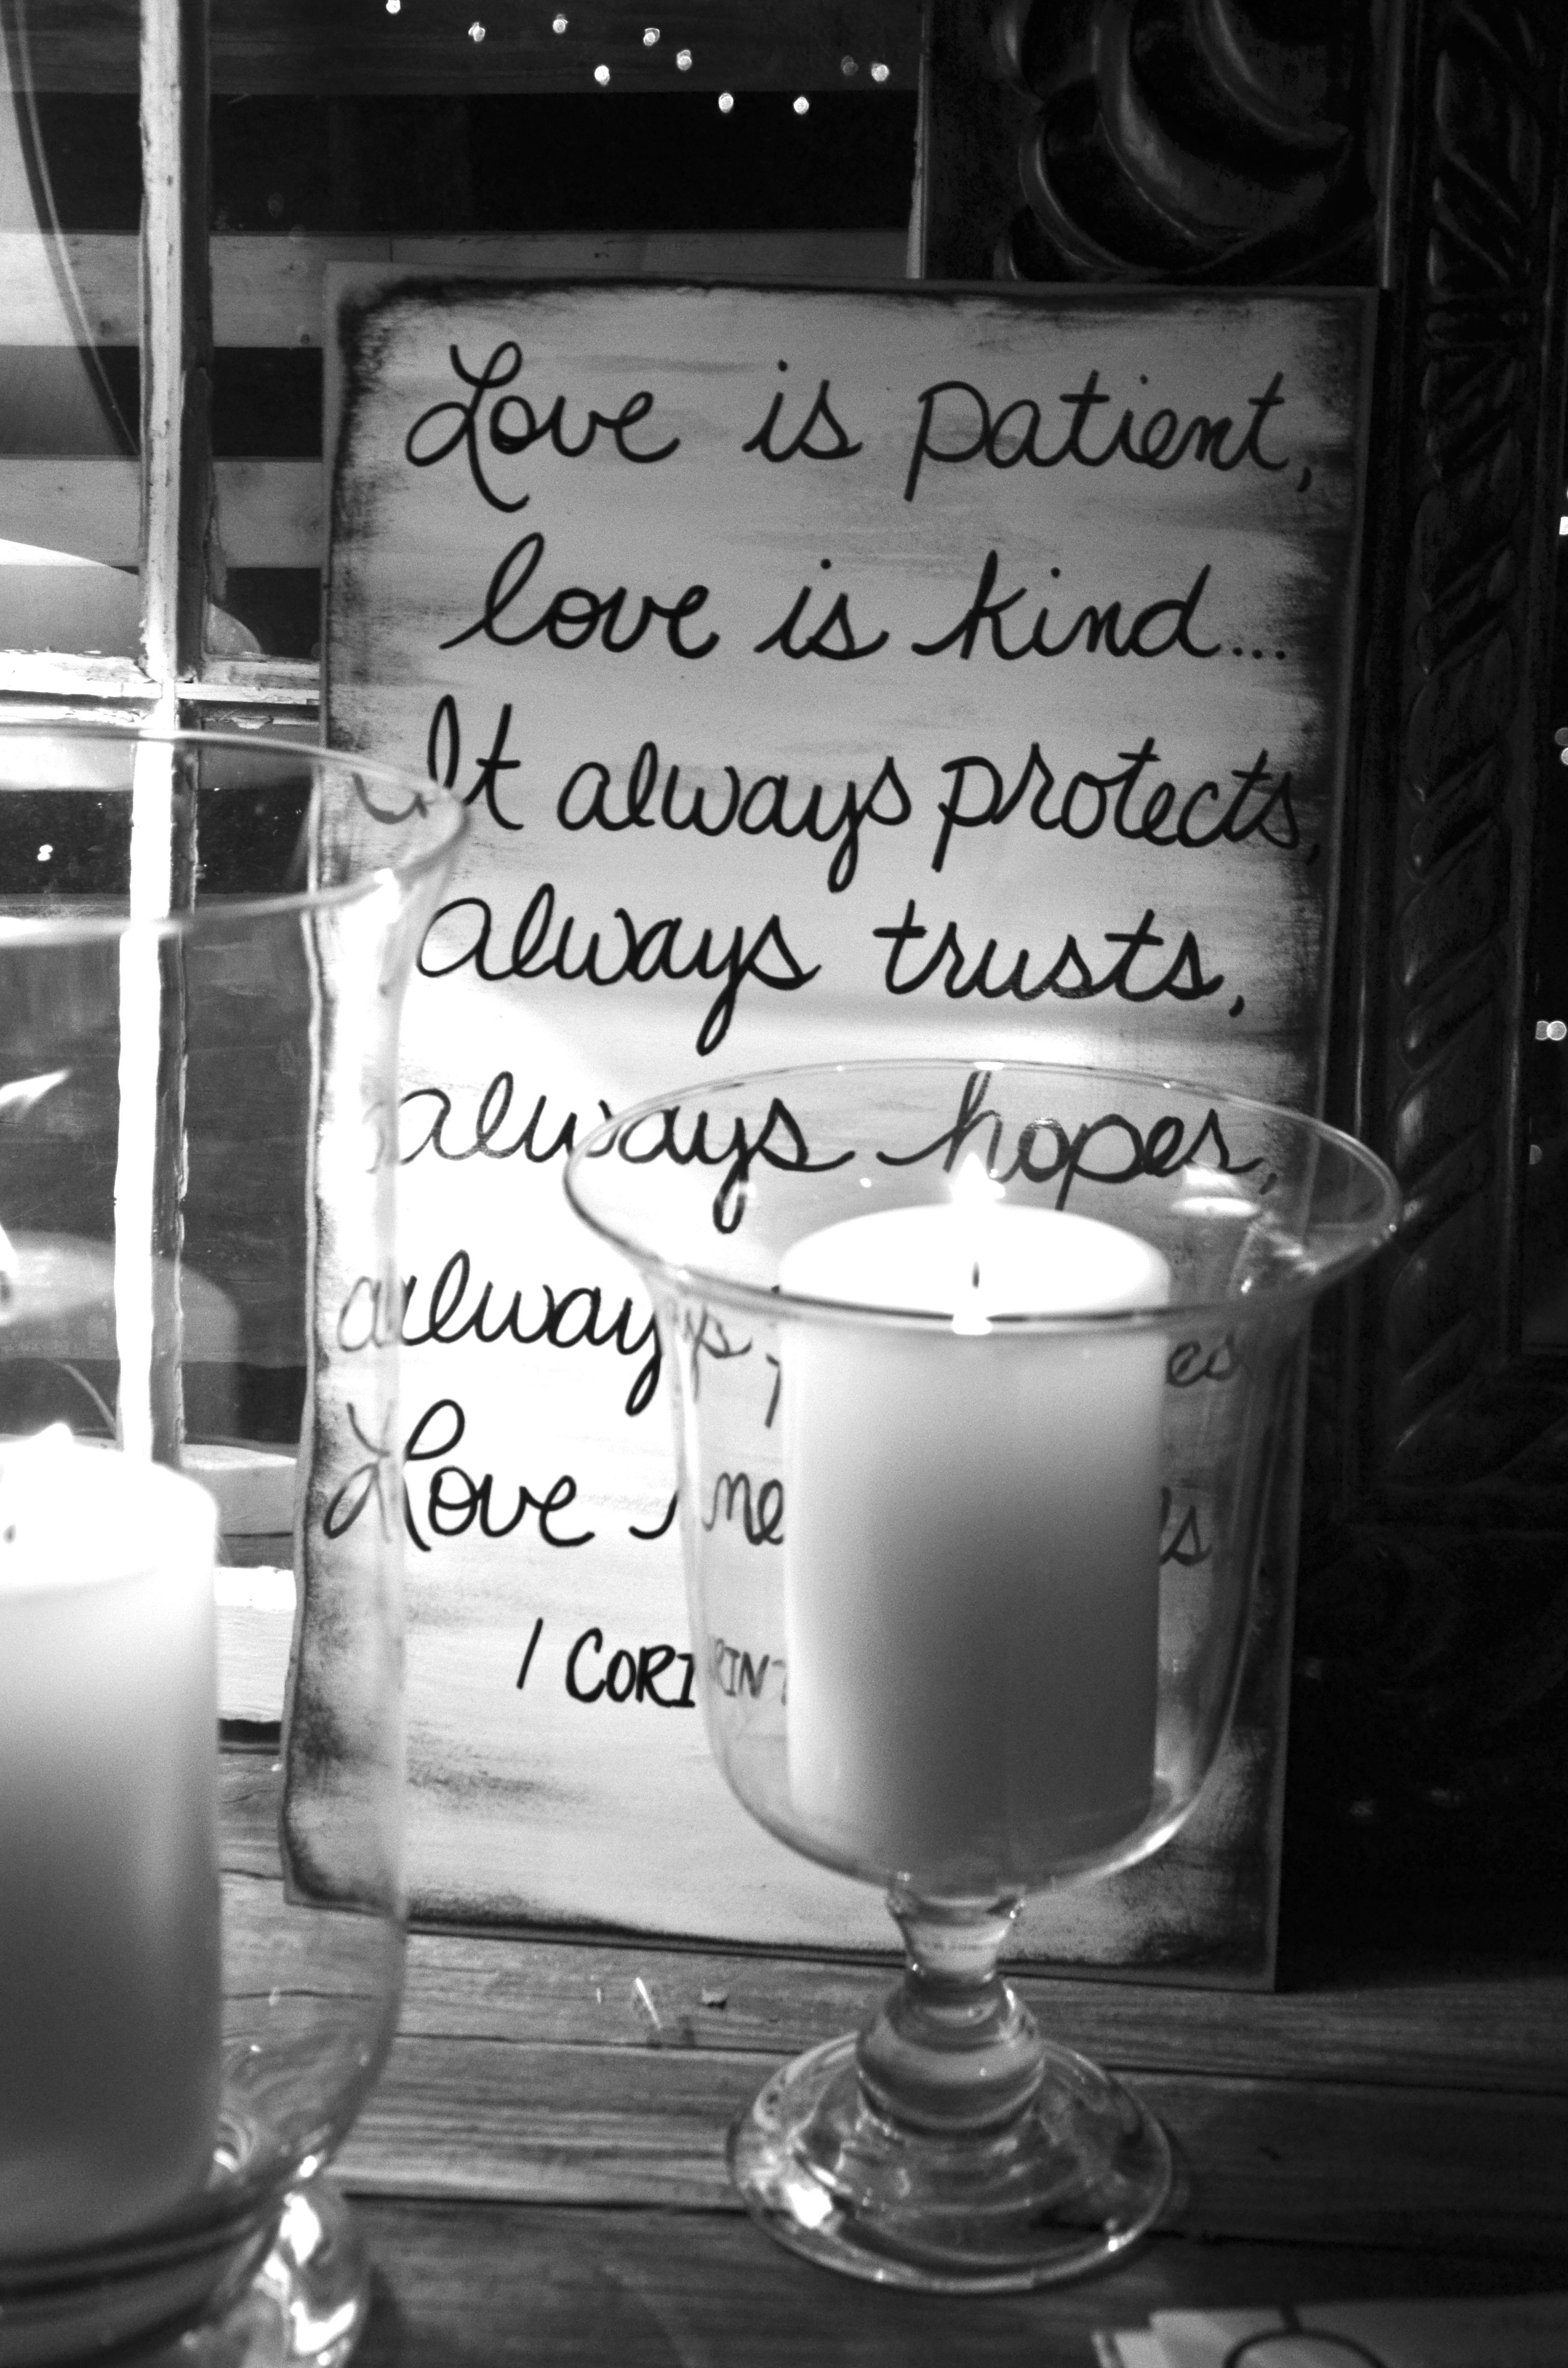 Love is patient,
love is kind...
It always protects,
always trusts,
always hopes,
always
Love
1